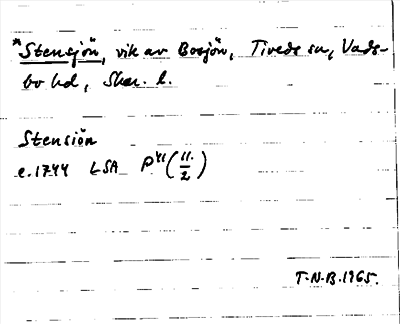 *Stensjön, vik av Bosjön, Tiveds sn, Vads-
bo hd, Skar. l.
Stensiön
e.1744 LSA P41 (11./2)
T.N.B.1965.